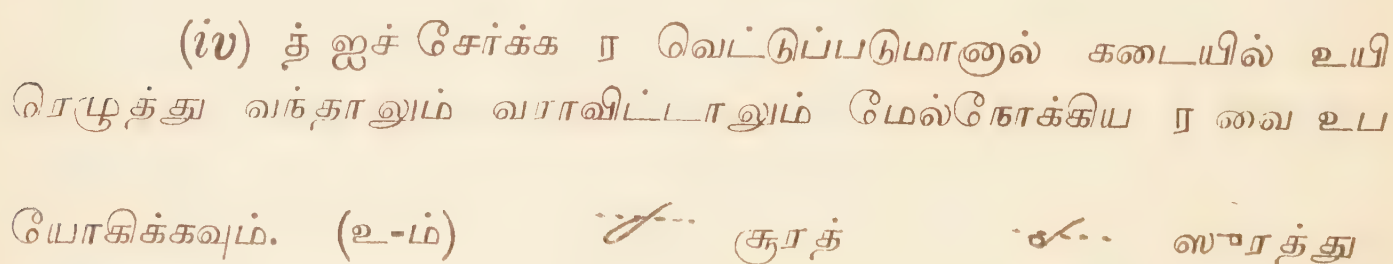 (iv) த் ஐச் சேர்க்க ர வெட்டுப்படுமானால் கடையில் உயி
ரெழுத்து வந்தாலும் வராவிட்டாலும் மேல்நோக்கிய ர வை உப
யோகிக்கவும். (உ-ம்) சூரத் ஸுரத்து